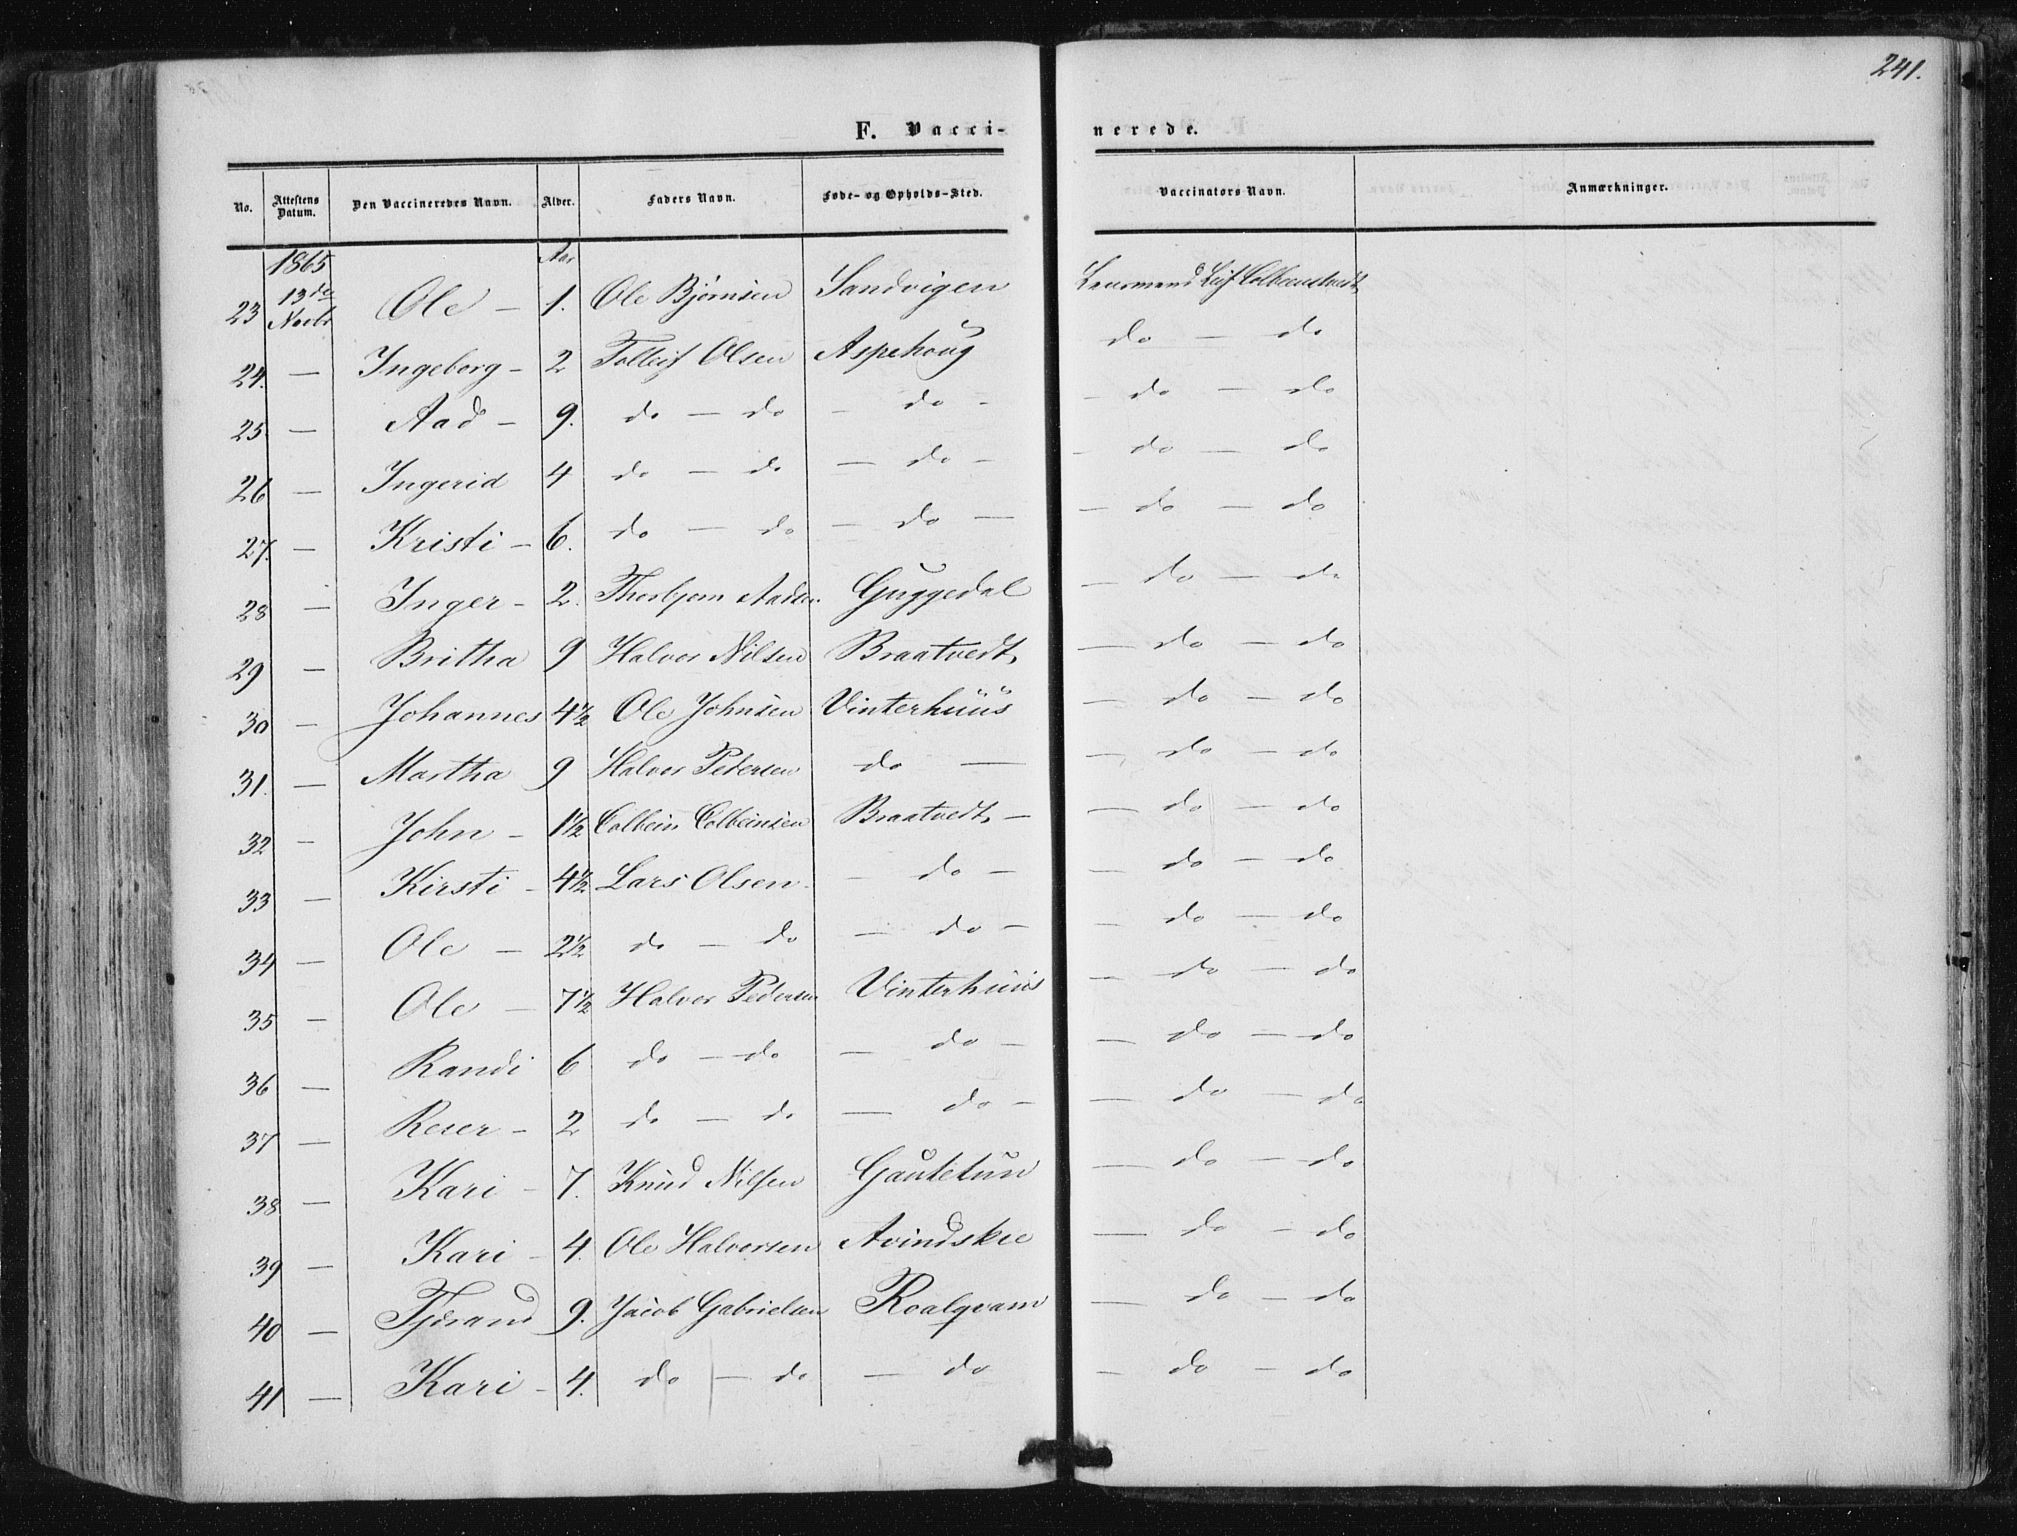 241.
F. Vacci- nerede.
No. Attestens Datum. Den Vaccineredes Navn. Alder. Faders Navn. Føde- og Opholds-Sted. Vaccinators Navn. Anmærkninger.
1865 Aar
23 13de Novbr Ole - 1. Ole Bjørnsen Sandvigen Lensmand Leif Colbeenstvedt
24. — Ingeborg - 2 Tolleif Olsen Aspehoug do — do
25. — Aad - 9. do — do - do - - do — do
26 — Ingerid 4 do — do — do - - do — do
27. — Kristi - 6. do do - do — - do — do
28 — Inger - 2. Thorbjørn Aadsen Guggedal — do — do
29 — Britha 9 Halvor Nilsen Braatvedt — do — do
30 — Johannes 4½ Ole Johnsen Vinterhuus — do — do
31. — Martha 9 Halvor Pedersen do — — do — do
32 - John - 1½ Colbein Colbeinsen Braatvedt — — do — do
33 — Kirsti - 4½ Lars Olsen - do - — do — do
34 — Ole — 2½ do — do — do - — do — do
35 — Ole — 7½ Halvor Pedersen Vinterhuus — do — do
36 — Randi 6 do — do — do - — do — do
37 — Reier - 2 do — do — do - — do — do
38 — Kari - 7. Knud Nilsen Gautetun — do — do
39 — Kari - 4. Ole Halvorsen Avindskre — do — do
40 — Tjerand 9. Jacob Gabrielsen Roalqvam — do — do
41 — Kari - 4. do — do — do — do — do